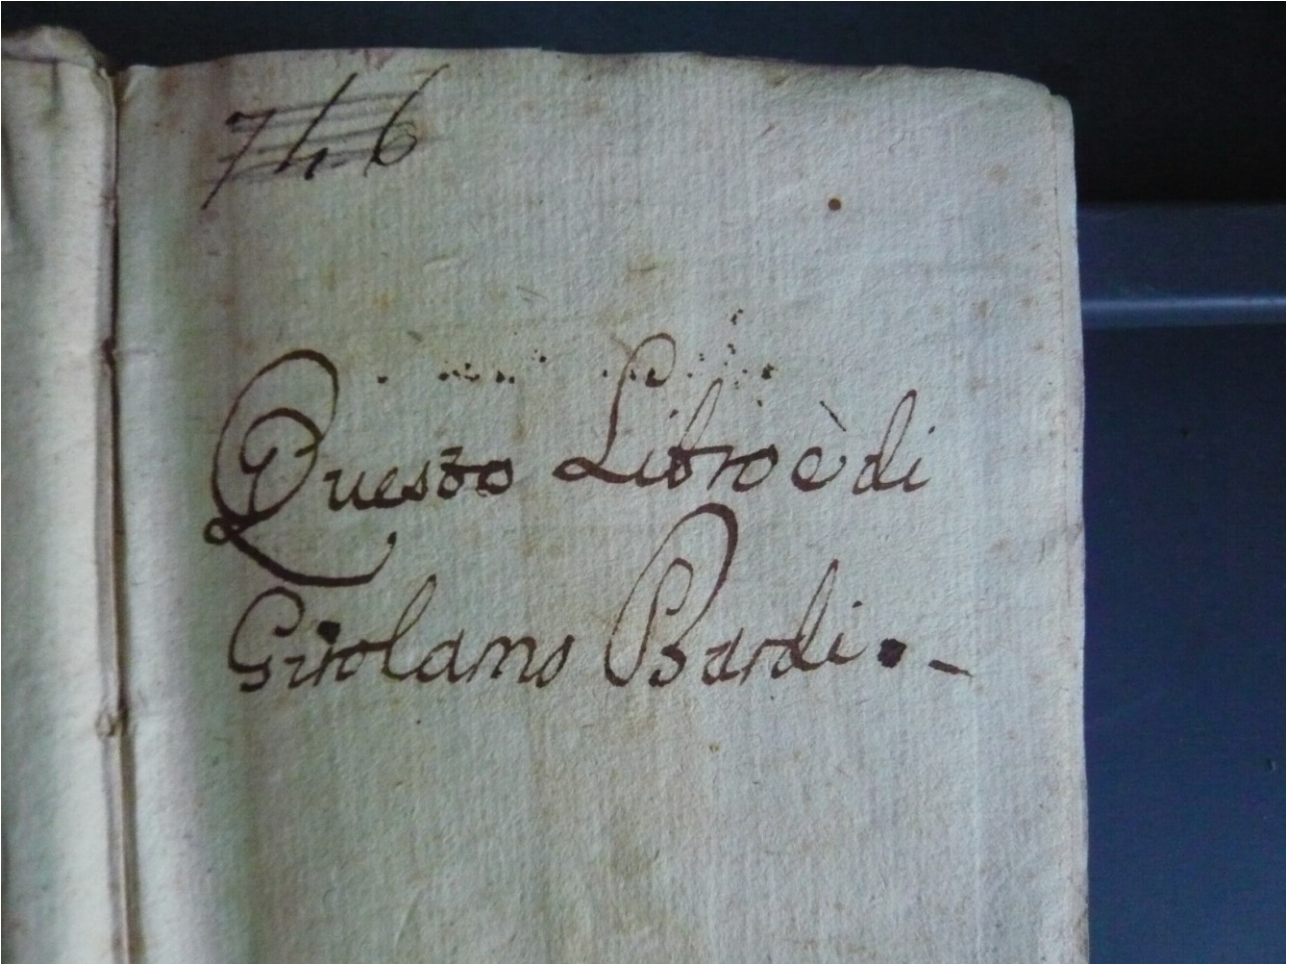 746
Questo Libro è di
Girolamo Bardi. -